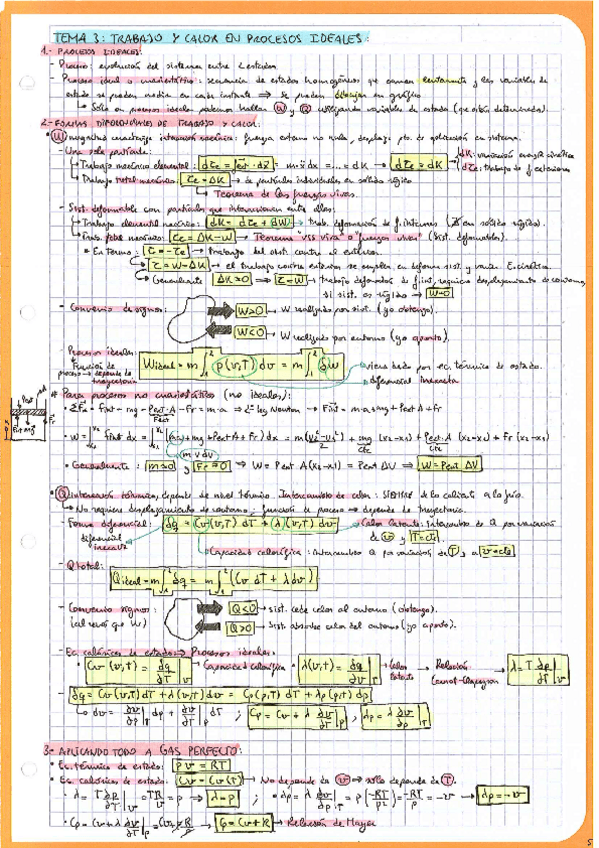 TEMA 3: TRABAJO Y CALOR EN PROCESOS IDEALES:
1.- PROCESOS IDEALES:
- Proceso: evolución del sistema entre 2 estados.
- Proceso ideal o cuasiestático: secuencia de estados homogéneos que ocurren lentamente y las variables de
estado se pueden medir en cada instante ⇒ se pueden dibujar en gráfico
↳ Solo en procesos ideales podemos hallar W y Q utilizando variables de estado (que están determinadas).
2.- FORMAS DIFERENCIALES DE TRABAJO Y CALOR:
• W magnitud interacción mecánica: fuerza externa no nula, desplaza pto. de aplicación en sistema.
- Una sola partícula:
↳ Trabajo mecánico elemental: = m·ẍ dx = ... = dK → dτe = dK
dK: variación energía cinética
dτe: trabajo de f. exteriores
↳ Trabajo total mecánico: τe = ΔK → de partículas individuales en sólido rígido
↳ Teorema de las fuerzas vivas.
- Sist. deformable con partículas que interaccionan entre ellas:
↳ Trabajo elemental mecánico: dK = dτe + δW → trab. deformación de f. internas (en sólido rígido).
↳ Trab. total mecánico: τe = ΔK - W → Teorema "vis viva" o "fuerzas vivas" (sist. deformables).
• En Termo: τ = -τe → trabajo del sist. contra el exterior.
τ = W - ΔK → el trabajo contra exterior se emplea en deformar sist. y variar E. cinética.
↳ Generalmente ΔK ≃ 0 ⇒ τ = W → trabajo deformador de f. int, requiere desplazamiento de contorno,
si sist. es rígido → W=0
- Convenio de signos:
W>0 → W realizado por sist. (yo obtengo).
W<0 → W realizado por entorno (yo aporto).
- Procesos ideales:
↳ Función de
proceso → depende de
trayectoria
Wideal = m∫₁² p(v,T) dv = m∫₁² δW
viene dado por ec. térmica de estado.
diferencial inexacta
* Para procesos no cuasiestáticos (no ideales):
• ΣFx = Fint - mg - Pext·A - Fr = m·a ⇒ 2ª ley Newton → Fint = m·a + mg + Pext A + Fr
• W = ∫ Fint dx = ∫ (m·a + mg + Pext A + Fr) dx = m(v₂²-v₁²)/2 + mg (x₂-x₁) + Pext·A (x₂-x₁) + Fr (x₂-x₁)
m v dv
cte
cte
• Generalmente: m≃0 y Fr≃0 ⇒ W = Pext A(x₂-x₁) = Pext ΔV ⇒ W = Pext ΔV
Pext
Fint mg
Fr
• Q interacción térmica, depende de nivel térmico. Intercambio de calor: SIEMPRE de lo caliente a lo frío.
↳ No requiere desplazamiento de contorno; función de proceso → depende de trayectoria.
- Forma diferencial: δq = Cv(v,T) dT + λ(v,T) dv
Calor latente: intercambio de Q por variación
de v y T=cte.
diferencial
inexacta
Capacidad calorífica: intercambio Q por variación de T, a v=cte
- Q total:
Qideal = m∫₁² δq = m∫₁² (Cv dT + λ dv)
- Convenio signos:
(al revés que W)
Q<0 → sist. cede calor al entorno (obtengo).
Q>0 → Sist. absorbe calor del entorno (yo aporto).
- Ec. calóricas de estado → Procesos ideales:
• Cv(v,t) = δq/dT |v → Capacidad calorífica • λ(v,t) = δq/dv |T → Calor latente → Relación Clausius-Clapeyron λ = T ∂p/∂T |v
- δq = Cv(v,T) dT + λ(v,T) dv = Cp(p,T) dT + λp(p,T) dp
↳ dv = ∂v/∂p |T dp + ∂v/∂T |p dT ; Cp = Cv + λ ∂v/∂T |p ; λp = λ ∂v/∂p |T
3.- APLICANDO TODO A GAS PERFECTO:
• Ec. térmica de estado: pv = RT
• Ec. calóricas de estado: Cv = Cv(T) → No depende de v ⇒ solo depende de T.
• λ = T ∂p/∂T |v = TR/v = p ⇒ λ=p ; • λp = λ ∂v/∂p |T = p(-RT/p²) = -RT/p = -v → λp = -v
• Cp = Cv + λ ∂v/∂T |p = Cv + p·R/p → Cp = Cv + R → Relación de Mayer
5